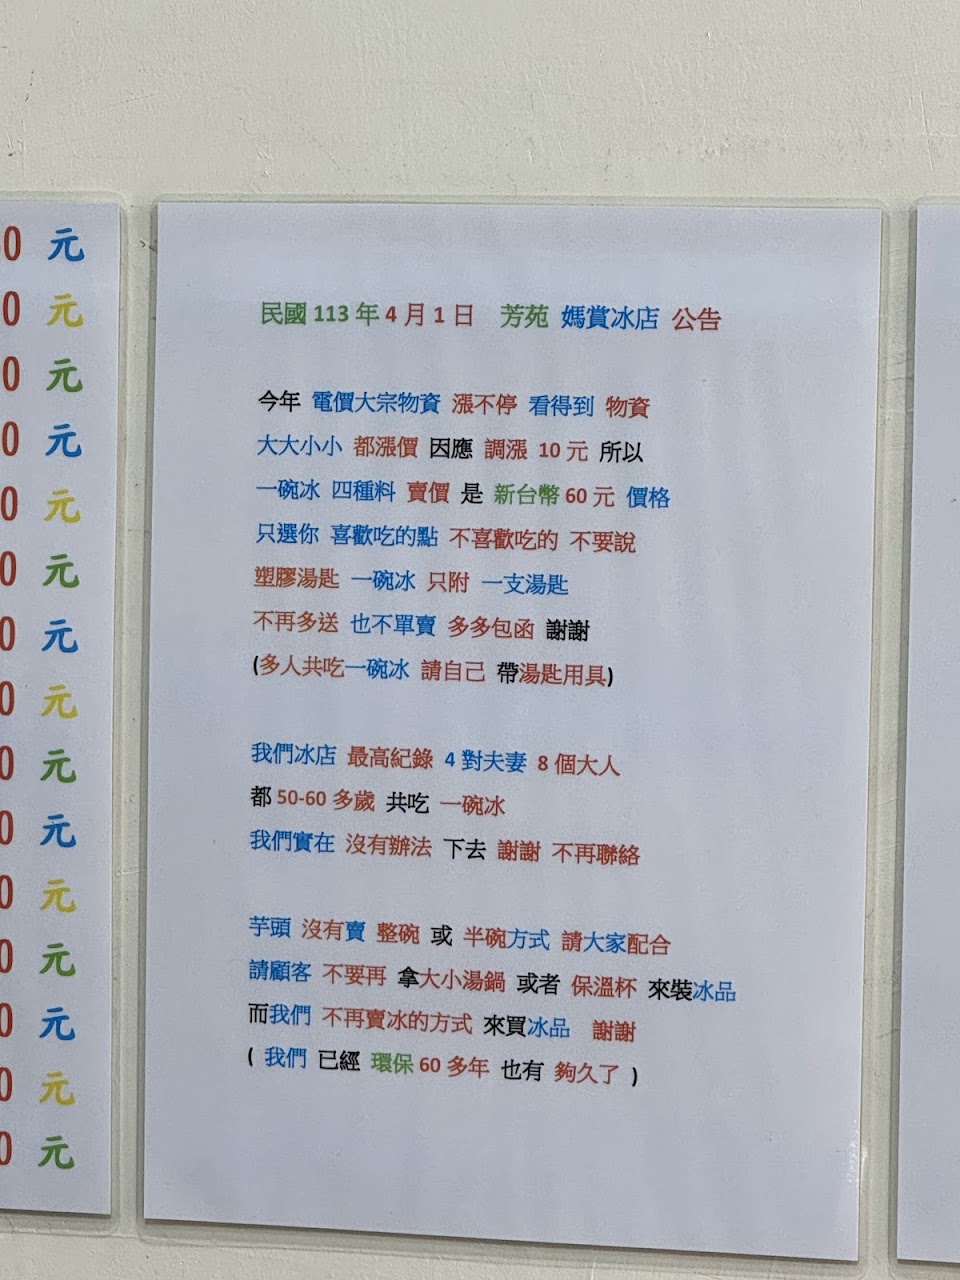 0 元
0 元
0 元
0 元
0 元
0 元
0 元
0 元
0 元
0 元
0 元
0 元
0 元
0 元
0 元
民國 113 年 4 月 1 日 芳苑 媽賞冰店 公告
今年 電價大宗物資 漲不停 看得到 物資
大大小小 都漲價 因應 調漲 10 元 所以
一碗冰 四種料 賣價 是 新台幣 60 元 價格
只選你 喜歡吃的點 不喜歡吃的 不要說
塑膠湯匙 一碗冰 只附 一支湯匙
不再多送 也不單賣 多多包函 謝謝
(多人共吃一碗冰 請自己 帶湯匙用具)
我們冰店 最高紀錄 4 對夫妻 8 個大人
都 50-60 多歲 共吃 一碗冰
我們實在 沒有辦法 下去 謝謝 不再聯絡
芋頭 沒有賣 整碗 或 半碗方式 請大家配合
請顧客 不要再 拿大小湯鍋 或者 保溫杯 來裝冰品
而我們 不再賣冰的方式 來買冰品 謝謝
( 我們 已經 環保 60 多年 也有 夠久了 )